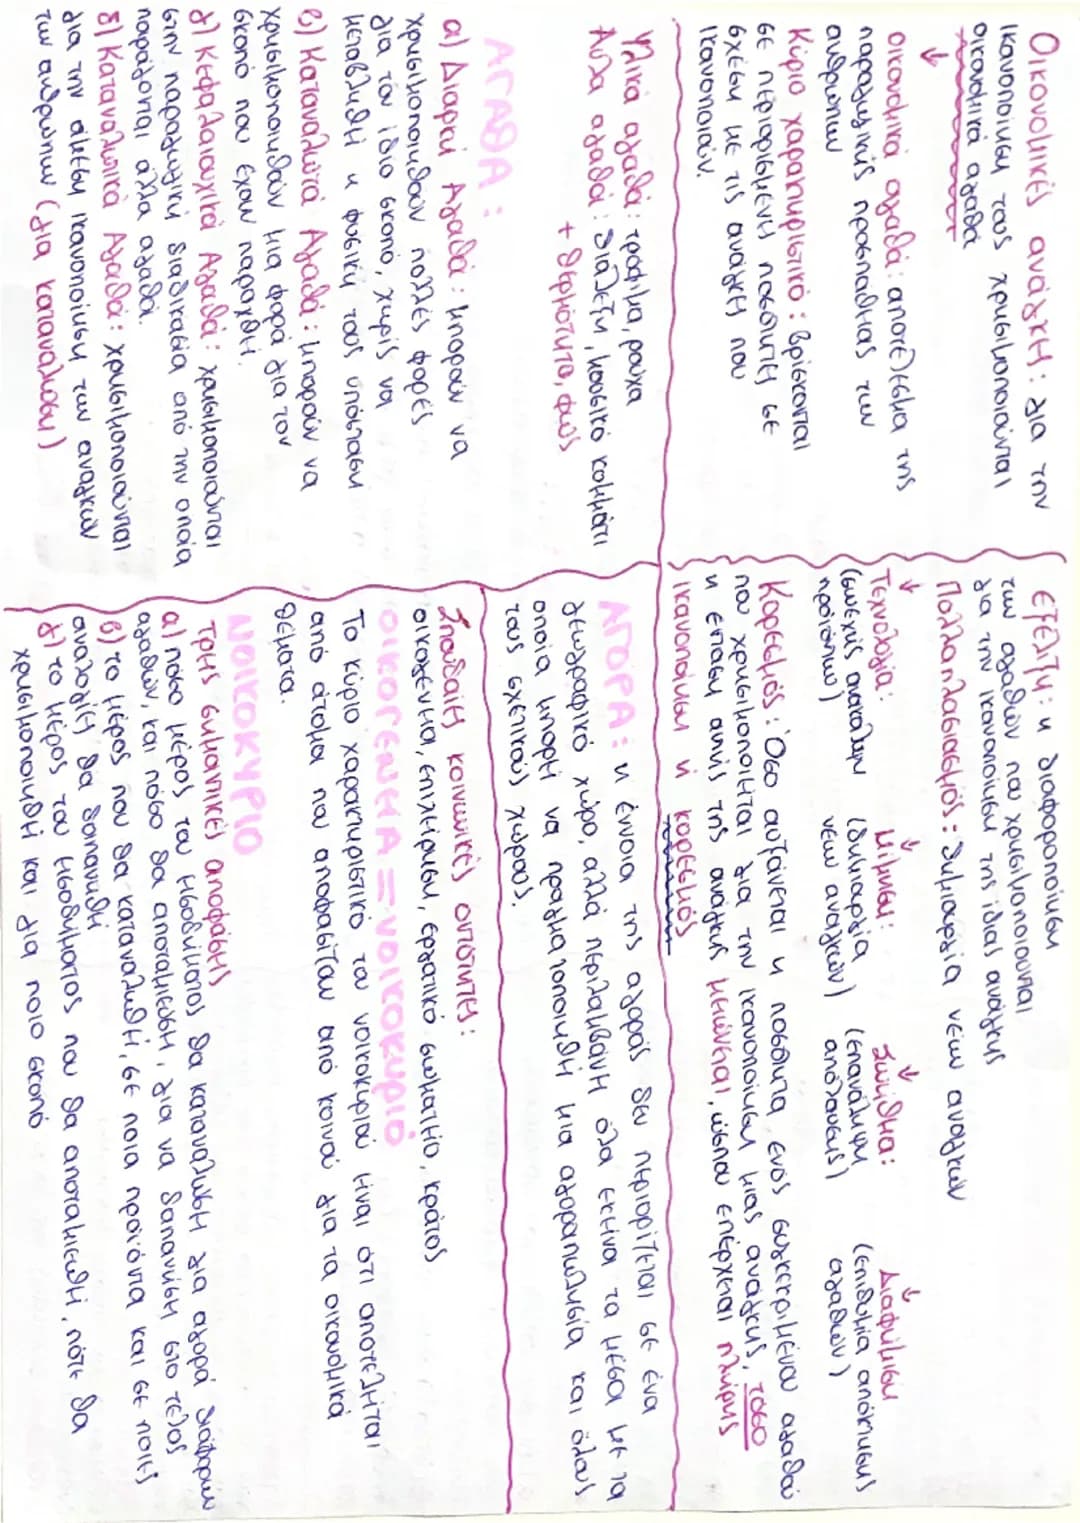 Οικονομικές ανάγκη: για την
ικανοποίηση τους χρησιμοποιούνται
οικονομικά αγαθά
↓
οικονομικά αγαθά: αποτέλεσμα της
παραγωγικής προσπάθειας των
ανθρώπων
Κύριο χαρακτηριστικό: βρίσκονται
σε περιορισμένη ποσότητα σε
σχέση με τις ανάγκες που
ικανοποιούν.
Υλικά αγαθά: τρόφιμα, ρούχα
Αυλα αγαθά: διάλεξη, μουσικό κομμάτι
+ θερμότητα, φως
ΑΓΑΘΑ:
α) Διαρκή Αγαθά: μπορούν να
χρησιμοποιηθούν πολλές φορές
για τον ίδιο σκοπό, χωρίς να
μεταβληθεί η φυσική τους υπόσταση
β) Καταναλωτά Αγαθά: μπορούν να
χρησιμοποιηθούν μια φορά για τον
σκοπό που έχουν παραχθεί.
γ) Κεφαλαιουχικά Αγαθά: χρησιμοποιούνται
στην παραγωγική διαδικασία από την οποία
παράγονται άλλα αγαθά.
δ) Καταναλωτικά Αγαθά: χρησιμοποιούνται
για την άμεση ικανοποίηση των αναγκών
των ανθρώπων (για κατανάλωση)
εξέλιξη: η διαφοροποίηση
των αγαθών που χρησιμοποιούνται
για την ικανοποίηση της ίδιας ανάγκης
Πολλαπλασιασμός: δημιουργία νέων αναγκών
↓ ↓ ↓ ↓
Τεχνολογία: Μίμηση: Συνήθεια: Διαφήμιση
(συνεχής ανακάλυψη (δημιουργία (επανάληψη (επιθυμία απόκτησης
προϊόντων) νέων αναγκών) απόλαυσης) αγαθών)
Κορεσμός: Όσο αυξάνεται η ποσότητα ενός συγκεκριμένου αγαθού
που χρησιμοποιείται για την ικανοποίηση μιας ανάγκης, τόσο
η ένταση αυτής της ανάγκης μειώνεται, ώσπου επέρχεται πλήρης
ικανοποίηση ή κορεσμός
ΑΓΟΡΑ: η έννοια της αγοράς δεν περιορίζεται σε ένα
γεωγραφικό χώρο, αλλά περιλαμβάνει όλα εκείνα τα μέσα με τα
οποία μπορεί να πραγματοποιηθεί μια αγοραπωλησία και όλους
τους σχετικούς χώρους.
Σπουδαίες κοινωνικές οντότητες:
οικογένεια, επιχείρηση, εργατικό σωματείο, κράτος
ΟΙΚΟΓΕΝΕΙΑ = νοικοκυριό
Το κύριο χαρακτηριστικό του νοικοκυριού είναι ότι αποτελείται
από άτομα που αποφασίζουν από κοινού για τα οικονομικά
θέματα.
ΝΟΙΚΟΚΥΡΙΟ
Τρεις σημαντικές αποφάσεις
α) πόσο μέρος του εισοδήματος θα καταναλώσει για αγορά διάφορων
αγαθών, και πόσο θα αποταμιεύσει, για να δαπανήσει στο τέλος
β) το μέρος που θα καταναλωθεί, σε ποια προϊόντα και σε ποιες
αναλογίες θα δαπανηθεί
γ) το μέρος του εισοδήματος που θα αποταμιευθεί, πότε θα
χρησιμοποιηθεί και για ποιο σκοπό